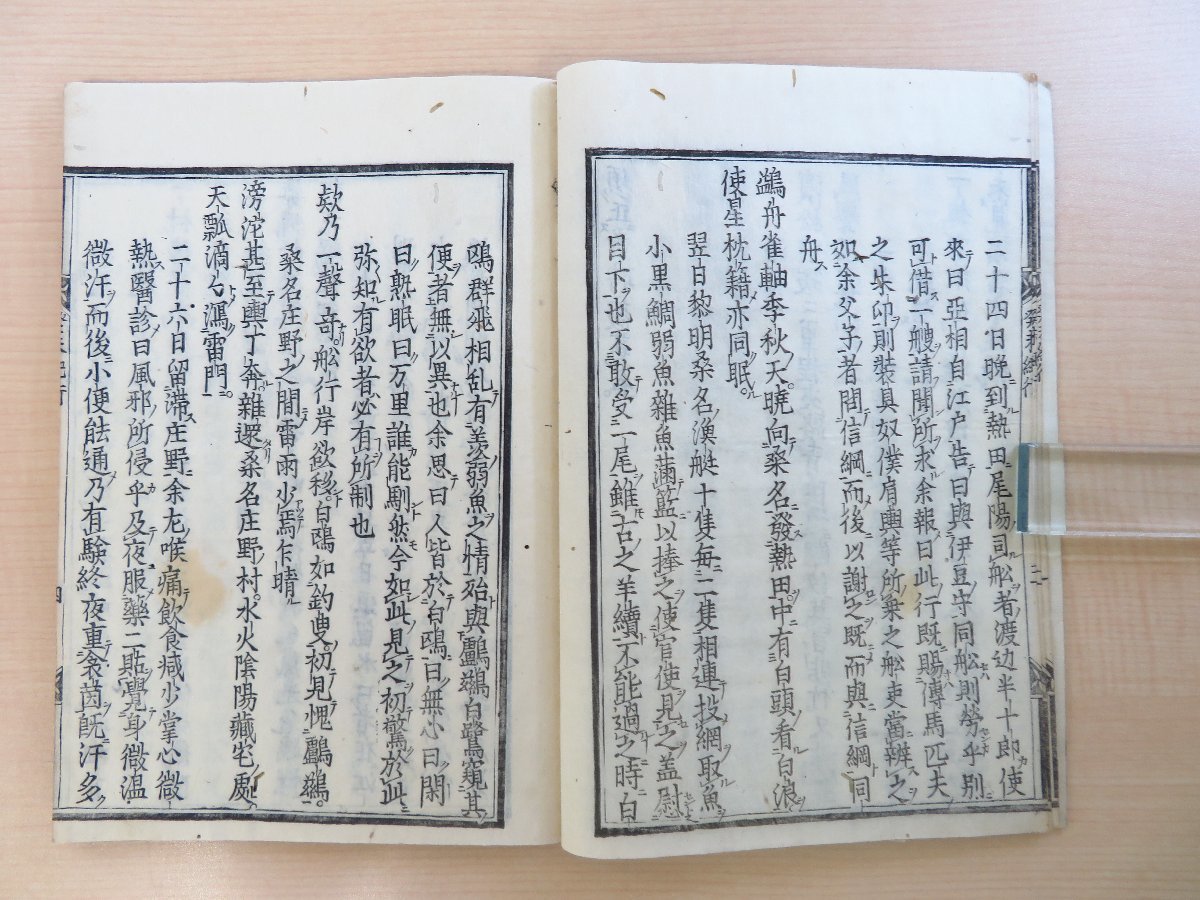 二十四日晚到熱田尾陽司舩者渡辺半十郎使
來曰亞相自江户告曰與伊豆守同舩則勞乎別
可借一艘請聞所求余報曰此行既賜傳馬匹夫
之朱印則裝具奴僕肩輿等所乗之舩吏當辨之
如余父子者陪信綱而後以謝之既而與信綱同
舟
鷁舟雀軸季秋天曉向桒名發熱田中有白頭看白浪
使星枕籍亦同眠
翌日黎明桑名漁艇十隻每二隻相連投網取魚
小黒鯛弱魚雜魚滿籃以捧之使官使見之盖慰
目下也不敢受一尾雖古之羊續不能過之時白
鴎群飛相乱有羨弱魚之情殆與鸕鷀白鷺窺其
便者無以異也余思曰人皆於白鴎曰無心曰閑
曰熟眠曰万里誰能馴然今如此見之初驚於此
弥知有欲者必有所制也
欸乃一聲奇舩行岸欲移白鴎如釣叟初見愧鸕鷀
桑名庄野之間雷雨少焉乍晴
滂沱甚至輿丁奔雜遝桑名庄野村水火陰陽藏宅處
天瓢滴々瀉雷門
二十六日留滞庄野余尤喉痛飲食减少掌心微
熱醫診曰風邪所侵乎及夜服藥二貼覺身微温
微汗而後小便能通乃有驗終夜重衾茵既汗多